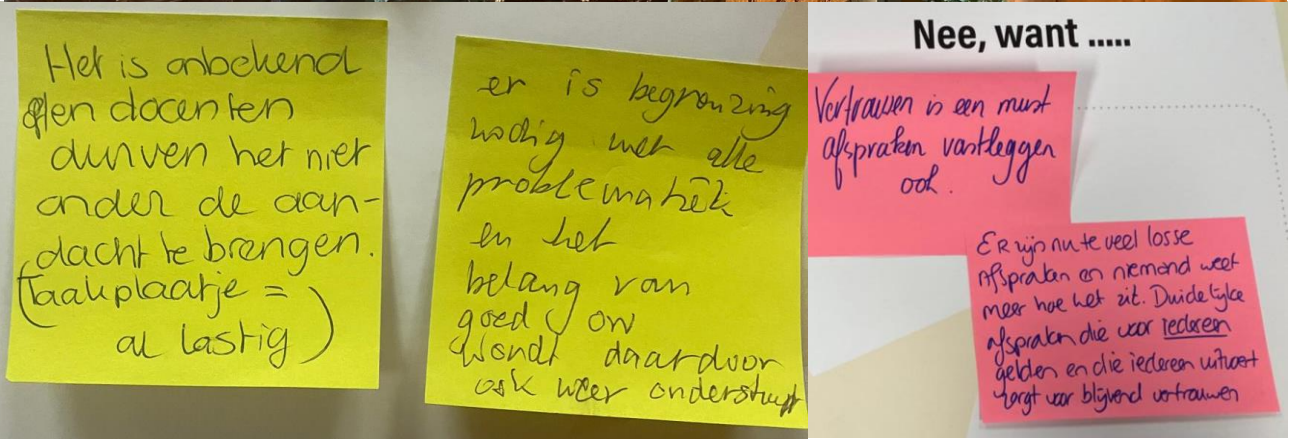 Het is onbekend
en docenten
durven het niet
onder de aan-
dacht te brengen.
(Taakplaatje =
al lastig)
er is begrenzing
nodig met alle
problematiek
en het
belang van
goed ow
wordt daardoor
ook weer ondersteunt
Nee, want .....
Vertrouwen is een must
afspraken vastleggen
ook.
Er zijn nu te veel losse
Afspraken en niemand weet
meer hoe het zit. Duidelijke
afspraken die voor iedereen
gelden en die iedereen uitvoert
zorgt voor blijvend vertrouwen